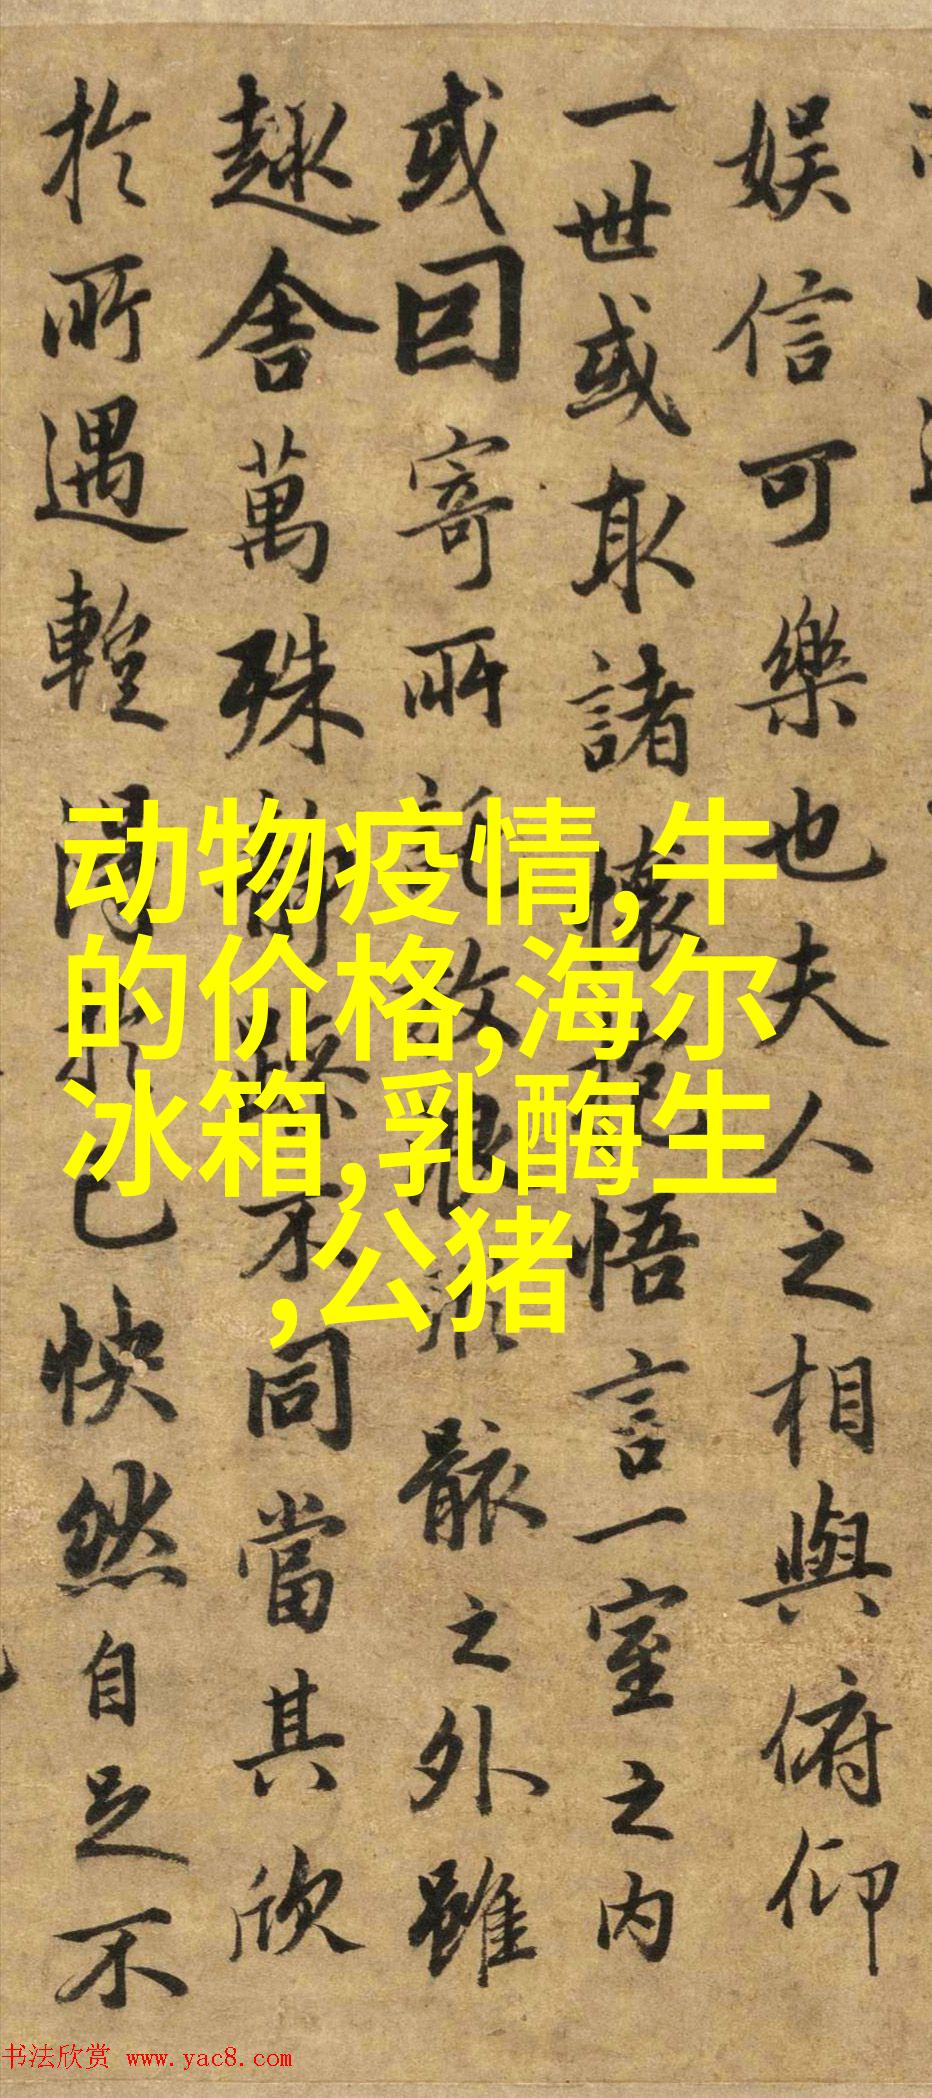 娱信可樂也夫人之相與俯仰
一世或取諸懷抱悟言一室之内
或因寄所託放浪形骸之外雖
趣舍萬殊静躁不同當其欣
於所遇蹔得於己快然自足不
动物疫情,牛
的价格,海尔
冰箱,乳酶生
,公猪
书法欣赏 www.yac8.com